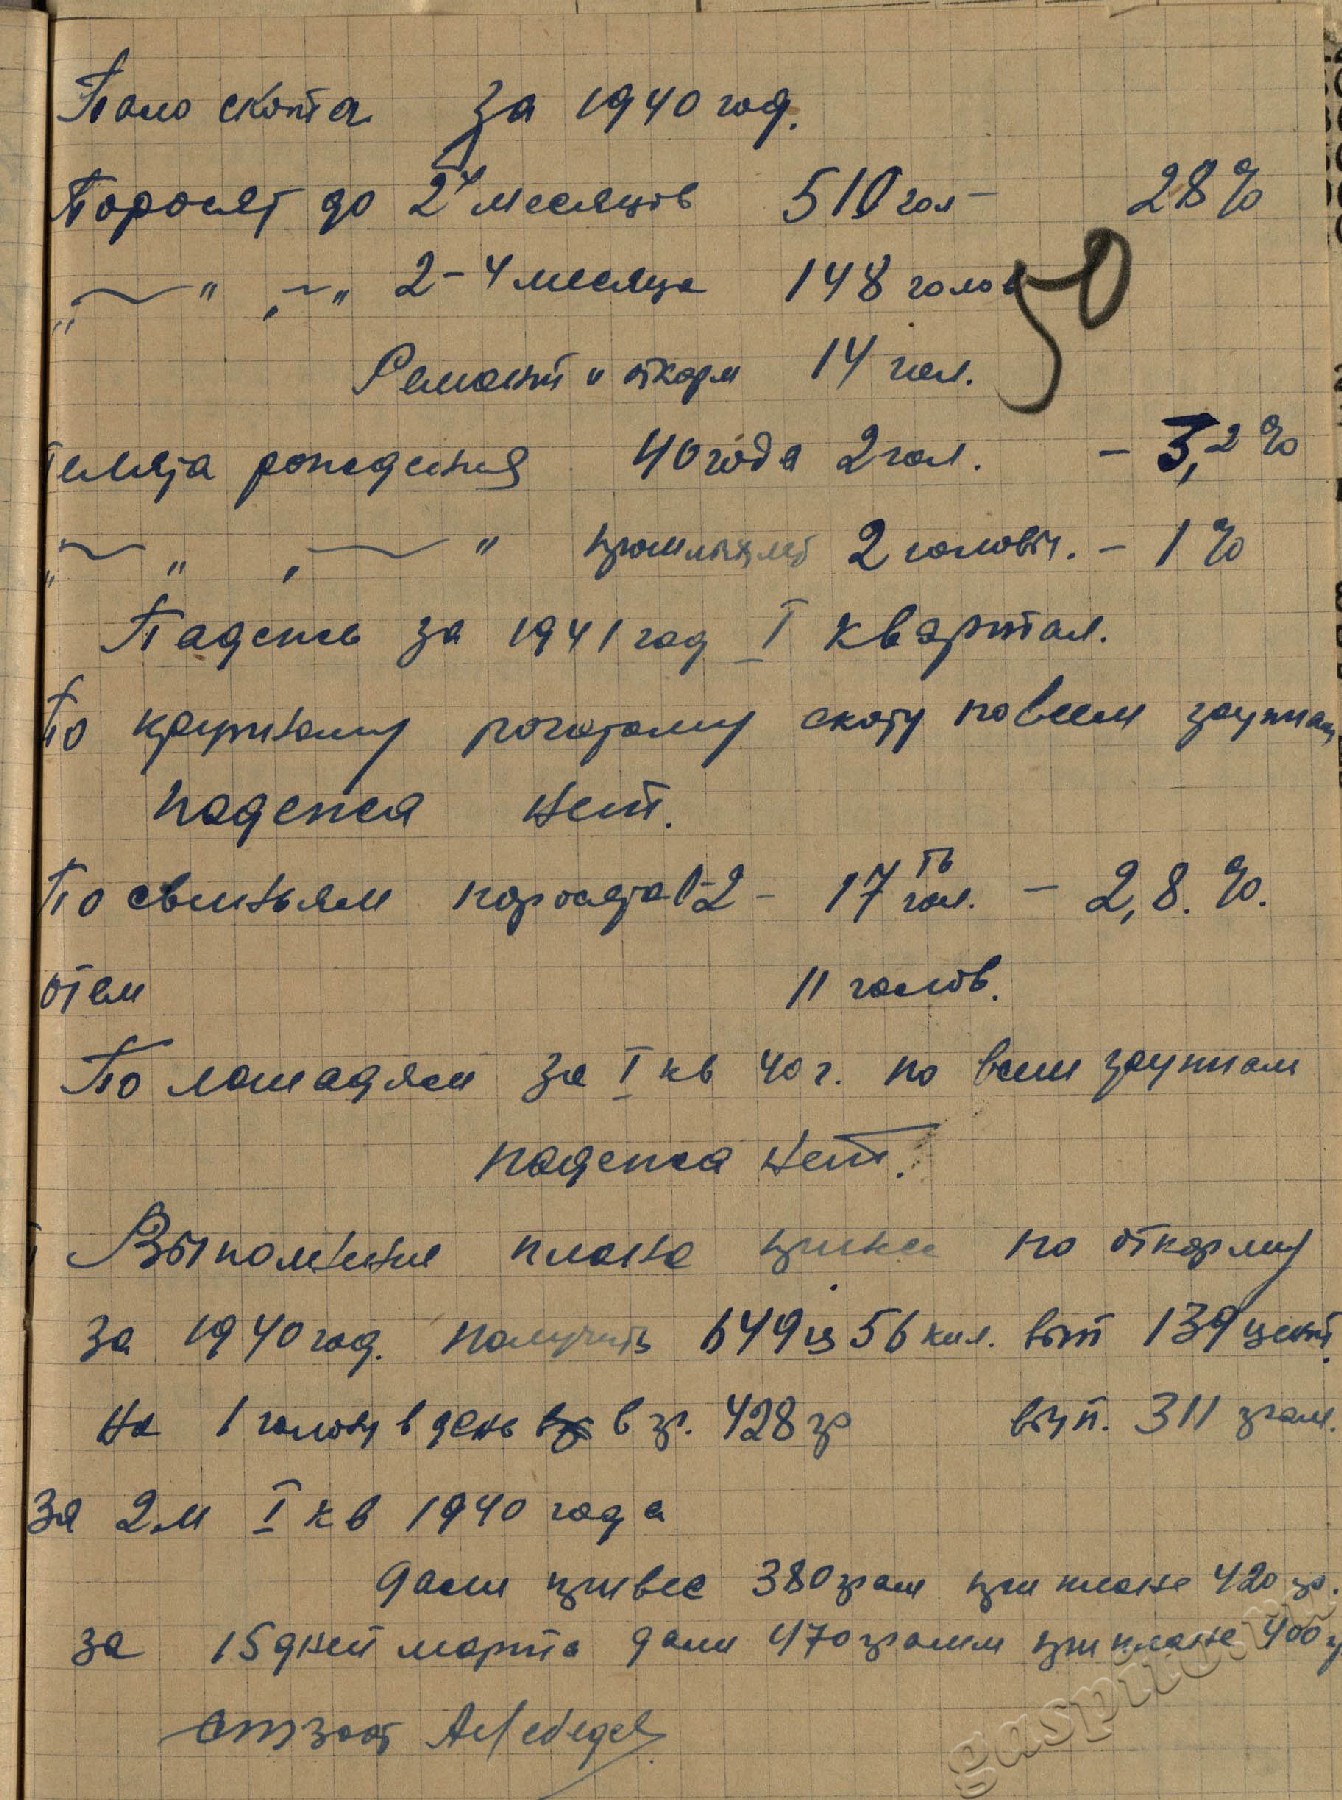 Пало скота за 1940 год.
Поросят до 2х месяцев 510 гол - 28%
„—" „—" 2-4 месяца 148 голов
50
Ремонт и откорм 14 гол.
Телята рождения 40 года 2 гол. - 3,2%
„—" „—" прошлых лет 2 головы. - 1%
Падеж за 1941 год I квартал.
По крупному рогатому скоту по всем группам
падежа нет.
По свиньям поросята 0-2 - 17 гол. - 2,8.%.
отем 11 голов.
По лошадям за I кв 40 г. по всем группам
падежа нет.
Выполнения плана привеса по откорму
за 1940 год. получить 649 ц 56 кил. вып 139 цент.
На 1 голову в день в гр. 428 гр вып. 311 грам.
За 2 м I кв 1940 года
дали привес 380 грам при плане 420 гр.
за 15 дней марта дали 470 грамм при плане 400 г
ст зоот А Лебедев
gaspito.ru